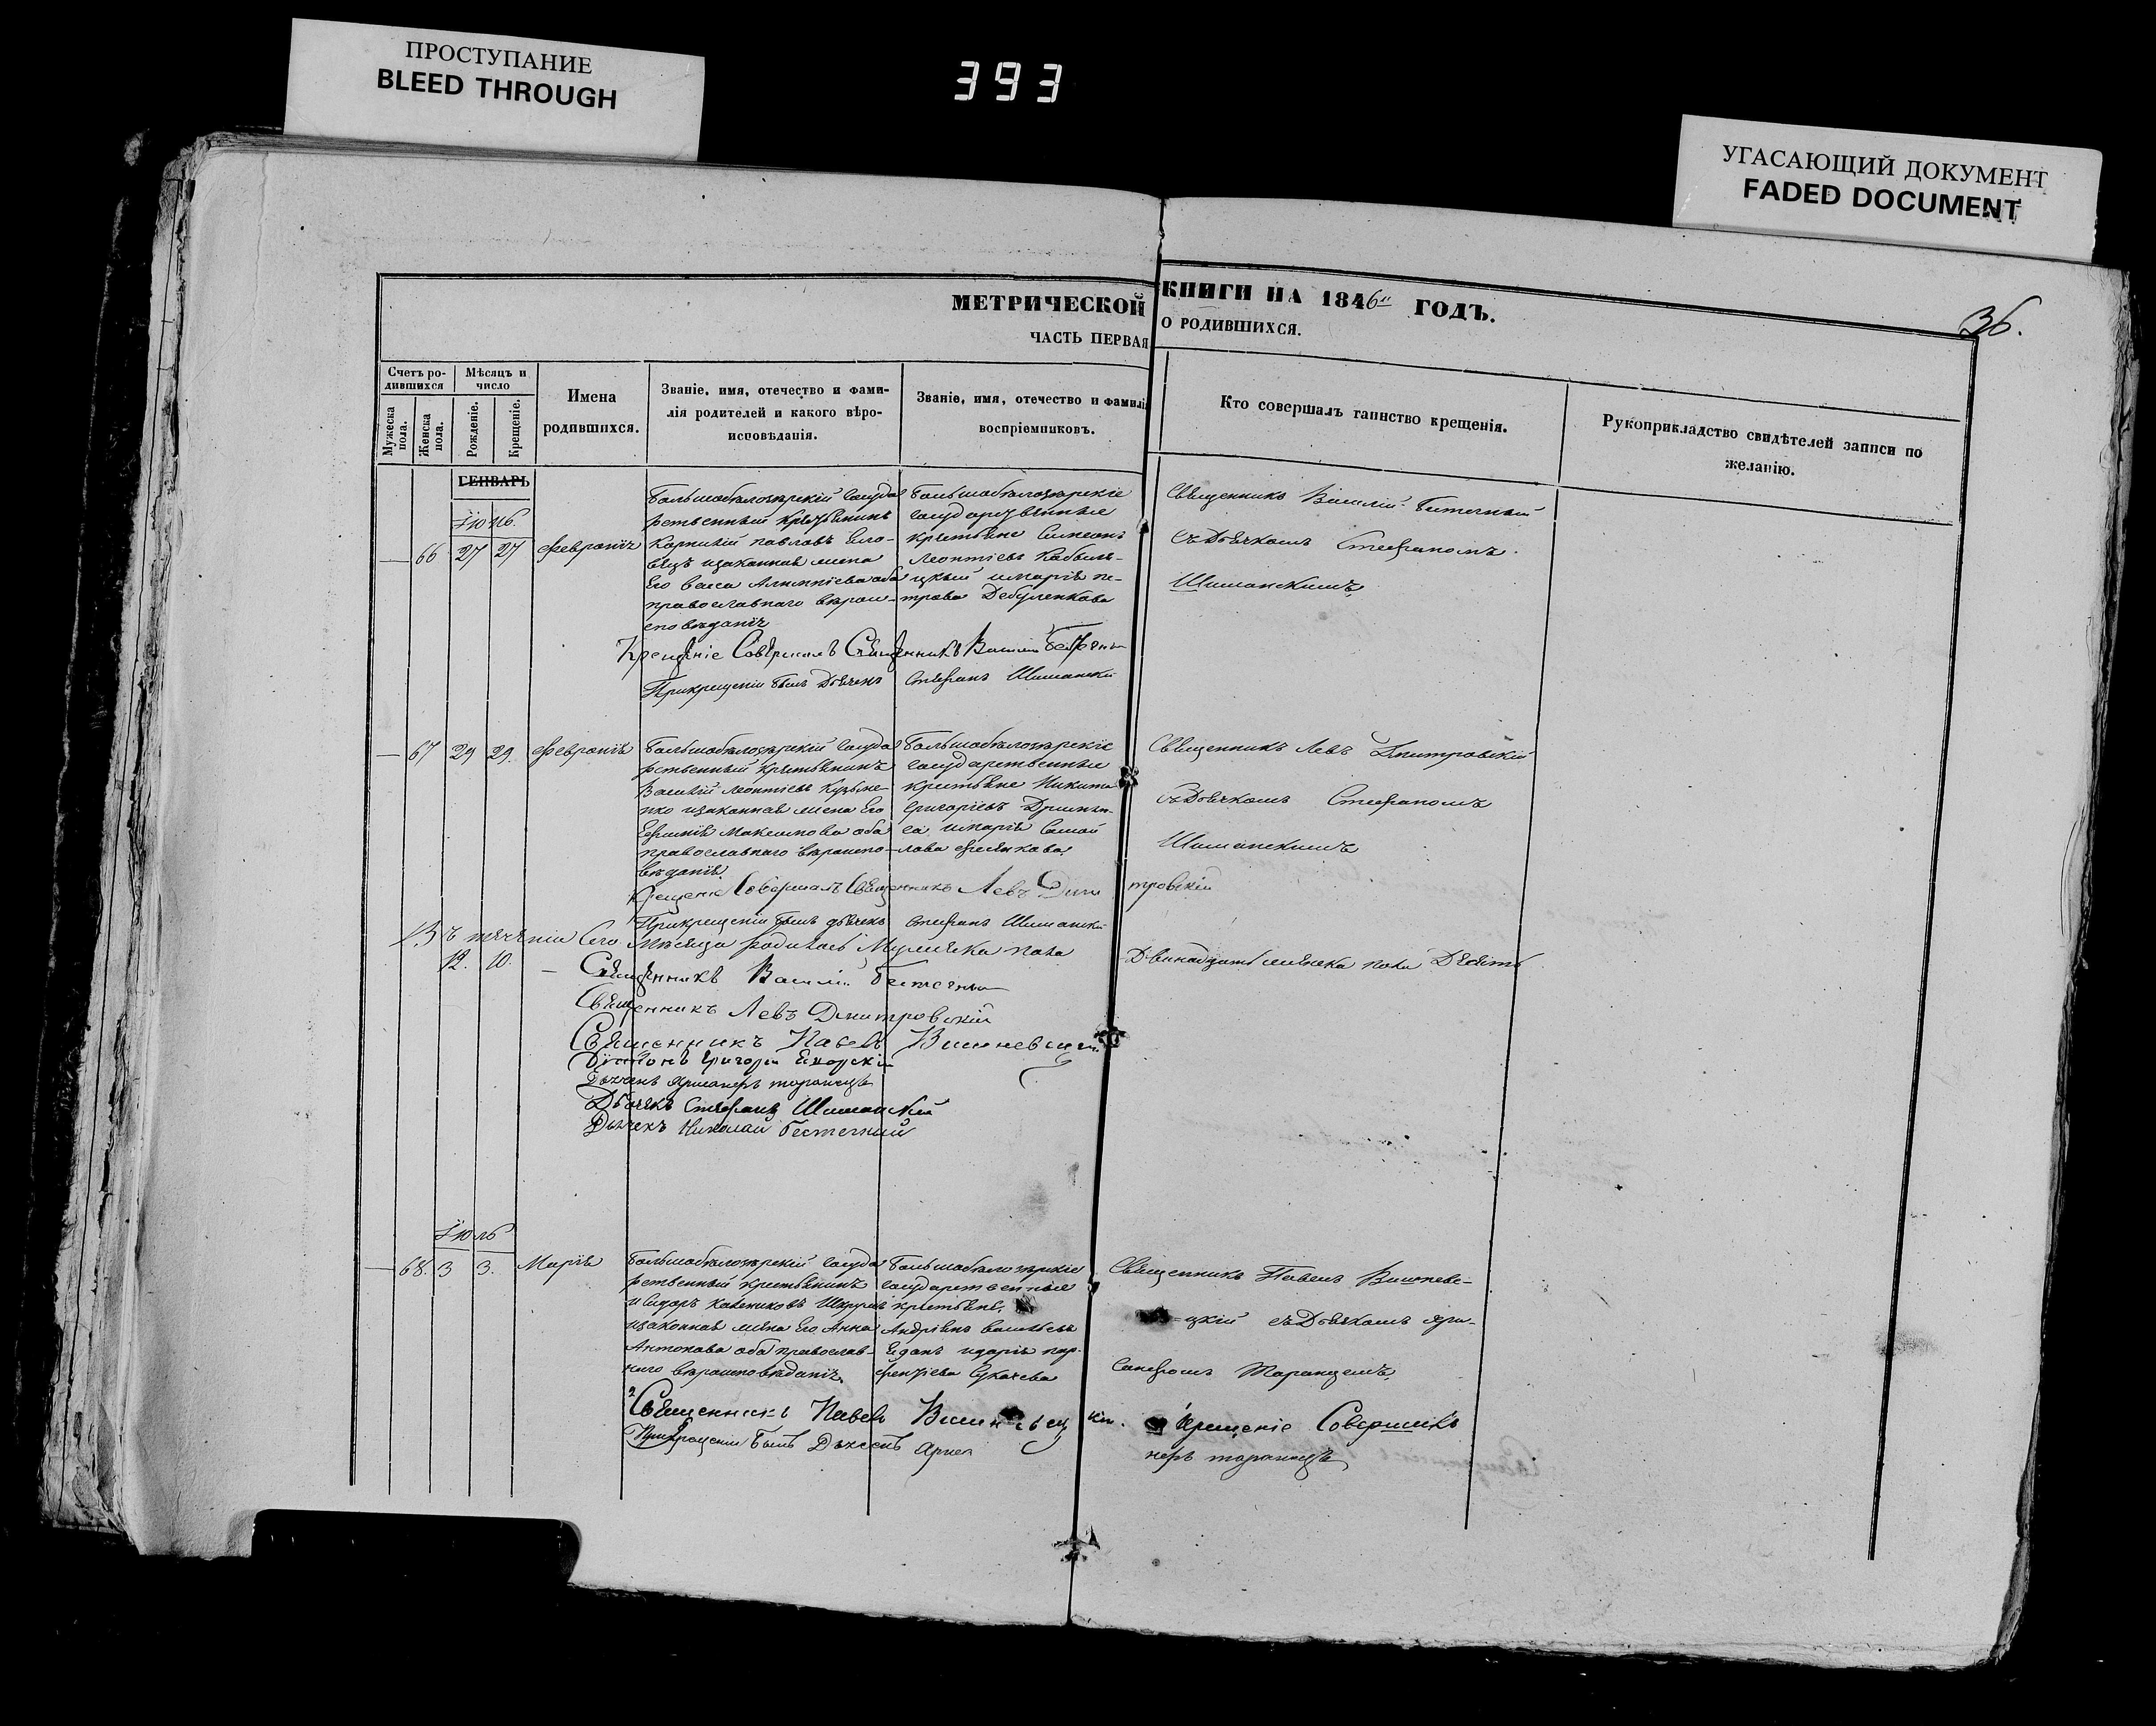 ПРОСТУПАНИЕ
BLEED THROUGH
393
УГАСАЮЩИЙ ДОКУМЕНТ
FADED DOCUMENT
36.
МЕТРИЧЕСКОЙ КНИГИ НА 1846 ГОДЪ.
ЧАСТЬ ПЕРВАЯ О РОДИВШИХСЯ.
Счетъ ро-
дившихся
Мѣсяцъ и
число
Мужеска
пола.
Женска
пола.
Рожденіе.
Крещеніе.
Имена
родившихся.
Званіе, имя, отечество и фами-
лія родителей и какого вѣро-
исповѣданія.
Званіе, имя, отечество и фамилія
воспріемниковъ.
Кто совершалъ таинство крещенія.
Рукоприкладство свидѣтелей записи по
желанію.
ГЕНВАРЬ
Іюнь.
— 66 27 27 Февронія
Большобѣлозерскій государ
ственный крестьянинъ
Корнилій Павловъ
изаконная жена
Его Васса Алимпіева оба
православнаго вѣрои-
сповѣданія
Большобѣлозерскіе
государственные
крестьяне Симеонъ
Леонтіевъ
имарія Пе-
трова
Священникъ Василій
съ Дьячкомъ Стефаномъ
Шиманскимъ
Крещеніе Совершалъ Священникъ Василій
При крещеніи былъ Дьячекъ Стефанъ Шиманскій
— 67 29 29. Февронія
Большобѣлозерскій государ
ственный крестьянинъ
Василій Леонтіевъ
изаконная жена Его
Евфимія Максимова оба
православнаго вѣроиспо-
вѣданія.
Большобѣлозерскіе
государственные
крестьяне Никита
Григоріевъ
имарія Самой
лова
Священникъ Левъ Дмитровскій
съ Дьячкомъ Стефаномъ
Шиманскимъ
Крещеніе Совершалъ Священникъ Левъ Дмитровскій
При крещеніи былъ дьячекъ Стефанъ Шиманскій
Въ теченіи Сего Мѣсяца родилось Мужеска пола Двинадцать женска пола Десять
12. 10.
Священникъ Василій
Священникъ Левъ Дмитровскій
Священникъ Павелъ Вишневецкій
Діаконъ Григорій
Дьячекъ Таранецъ
Дьячекъ Стефанъ Шиманскій
Дьячекъ Николай
Іюль
— 68. 3 3. Марія
Большобѣлозерскій государ
ственный крестьянинъ
изаконная жена Его Анна
Антонова оба православ-
наго вѣроисповѣданія.
Большобѣлозерскіе
государственные
крестьяне.
Андріянъ Васильевъ
Священникъ Павелъ Вишневе-
цкій съ Дьячкомъ
Таранцемъ.
Священникъ Павелъ Вишневецкій. Крещеніе Совершилъ
При крещеніи былъ Дьячекъ
Таранецъ